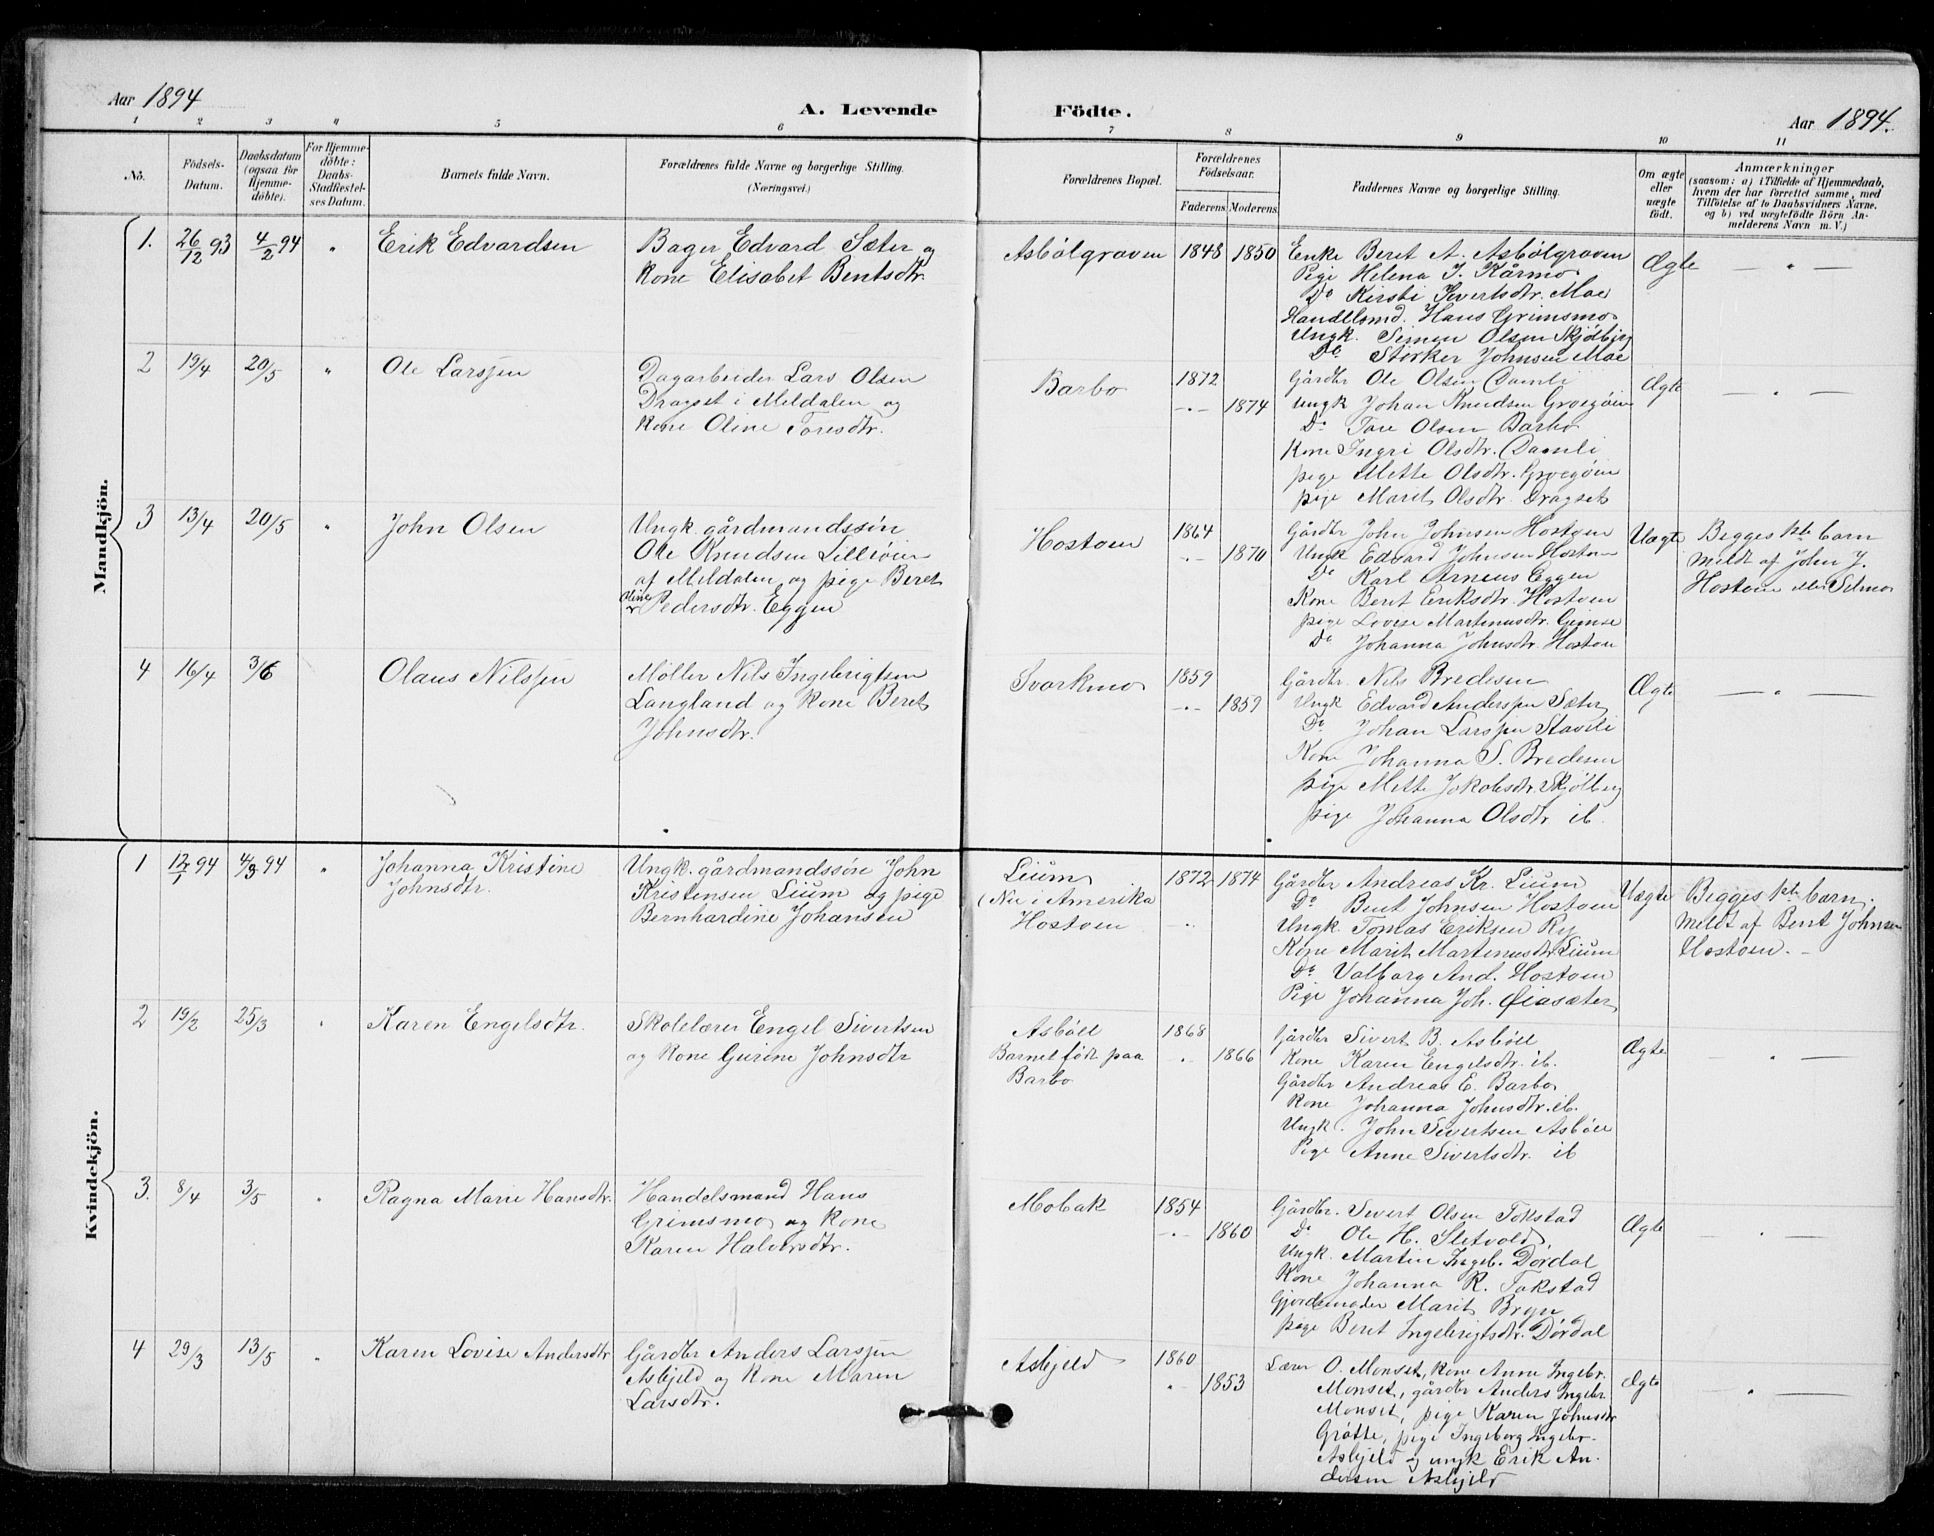 Aar 1894
A. Levende Födte.
Aar 1894.
1 2 3 4 5 6 7 8 9 10 11
No.
Födsels-Datum.
Daabsdatum (ogsaa for Hjemmedöbte).
For Hjemmedöbte: Daabs-Stadfæstelses Datum.
Barnets fulde Navn.
Forældrenes fulde Navne og borgerlige Stilling. (Næringsvei.)
Forældrenes Bopæl.
Forældrenes Födselsaar.
Faderens. Moderens.
Faddernes Navne og borgerlige Stilling.
Om ægte eller uægte födt.
Anmærkninger
(saasom: a) i Tilfælde af Hjemmedaab,
hvem der har forrettet samme, med
Tilföielse af to Daabsvidners Navne,
og b) ved uægtefödte Börn Anmelderens Navn m. V.)
Mandkjön.
1. 26/12 93 4/2 94 " Erik Edvardsen
Bager Edvard Sæter og
kone Elisabet Bentsdtr.
Asbølgraven 1848 1850
Enke Beret A. Asbølgraven
Pige Helena J. Kårmo
Do Kirsti Sivertsdtr. Moe
Handelsmd. Hans Grimsmo
Ungk. Simon Olsen Skjølberg
Do Størker Johnsen Moe
Ægte — " —
2 19/4 20/5 " Ole Larssen
Dagarbeider Lars Olsen
Dragset i Meldalen og
kone Oline Toresdtr.
Barbo 1872
-"- 1874
Gårdbr Ole Olsen Damli
Ungk Johan Knudsen Grøgøien
Do Tore Olsen Barbo
Kone Ingri Olsdtr. Damli
pige Mette Olsdtr. Grøgøien
pige Marit Olsdtr. Dragset
Ægte — " —
3 13/4 20/5 " John Olsen
Ungk. gårdmandssøn
Ole Knudsen Lilleøien
af Meldalen og pige Beret
Pedersdtr. Eggen
Hostoen 1864
-"- 1870
Gårdbr John Johnsen Hostoen
Ungk Edvard Johnsen Hostoen
Do Karl Arneus Eggen
Kone Beret Eriksdtr. Hostoen
pige Lovise Martinusdtr. Gumse
Do Johanna Johnsdtr. Hostoen
Uægte
Begges 1ste barn
meldt af John J.
Hostoen
4 16/4 3/6 Olaus Nilssen
Møller Nils Ingebrigtsen
Langland og kone Beret
Johnsdtr.
Svorkmo 1859
-"- 1859
Gårdbr. Nils Bredesen
Ungk Edvard Anderssen Sæter
Do Johan Larssen Stavli
Kone Johanna S. Bredesen
pige Mette Jakobsdtr. Skjølberg
pige Johanna Olsdtr ib.
Ægte — " —
Kvindekjön.
1 12/1 94 4/3 94 " Johanna Kristine
Johnsdtr.
Ungk. gårdmandssøn John
Kristensen Lium og pige
Bernhardine Johansen
Lium
(Nu i Amerika
Hostoen
1872 1874
-"-
Gårdbr Andreas Kr. Lium
Do Bent Johnsen Hostoen
Ungk. Tomas Eriksen Ry
Kone Marit Martinusdtr. Lium
Do Valborg And. Hostoen
Pige Johanna Joh. Øiasæter
Uægte
Begges 1ste barn.
Meldt af Bent Johnsen
Hostoen. -
2 19/2 25/3 " Karen Engelsdtr.
Skolelærer Engel Sivertsen
og kone Gurine Johnsdtr
Asbøll
Barnet født paa
Barbo
1868
" 1866
Gårdbr Sivert B. Asbøll
Kone Karen Engelsdtr. ib.
Gårdbr Andreas E. Barbo
Kone Johanna Johnsdtr. ib.
Ungk. John Sivertsen Asbøll
Pige Anne Sivertsdtr. ib
Ægte " —
3. 8/4 3/5 " Ragna Marie Hansdtr.
Handelsmand Hans
Grimsmo og kone
Karen Halvorsdtr.
Mobak 1854
-"- 1860
Gårdbr. Sivert Olsen Tokstad
Do Ole H. Sletvold
Ungk. Martin Ingeb. Dørdal
Kone Johanna R. Tokstad
Gjordemoder Marit Bryn
pige Beret Ingebrigtsdtr. Dørdal
Ægte - " —
4 29/3 13/5 " Karen Lovise Andersdtr
Gårdbr Anders Larssen
Asbjeld og kone Maren
Larsdtr.
Asbjeld 1860
" 1853
Lærer O. Monset, kone Anne Ingebr.
Monset, gårdbr Anders Ingebr
Monset, pige Karen Johnsdtr
Grøtte, pige Ingeborg Ingebr.
Asbjeld og ungk Erik An-
dersen Asbjeld
Ægte " —